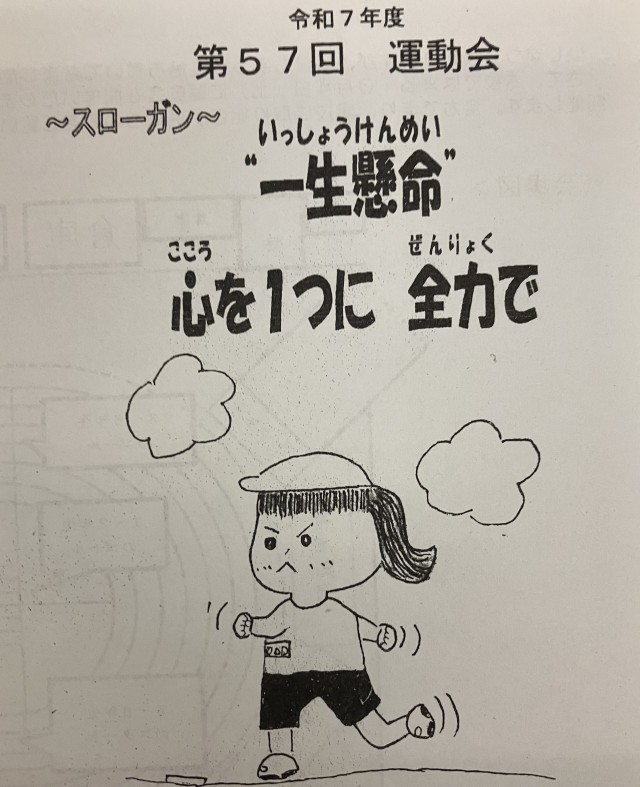 令和7年度
第57回 運動会
～スローガン～
いっしょうけんめい
“一生懸命”
こころ ぜんりょく
心を1つに 全力で